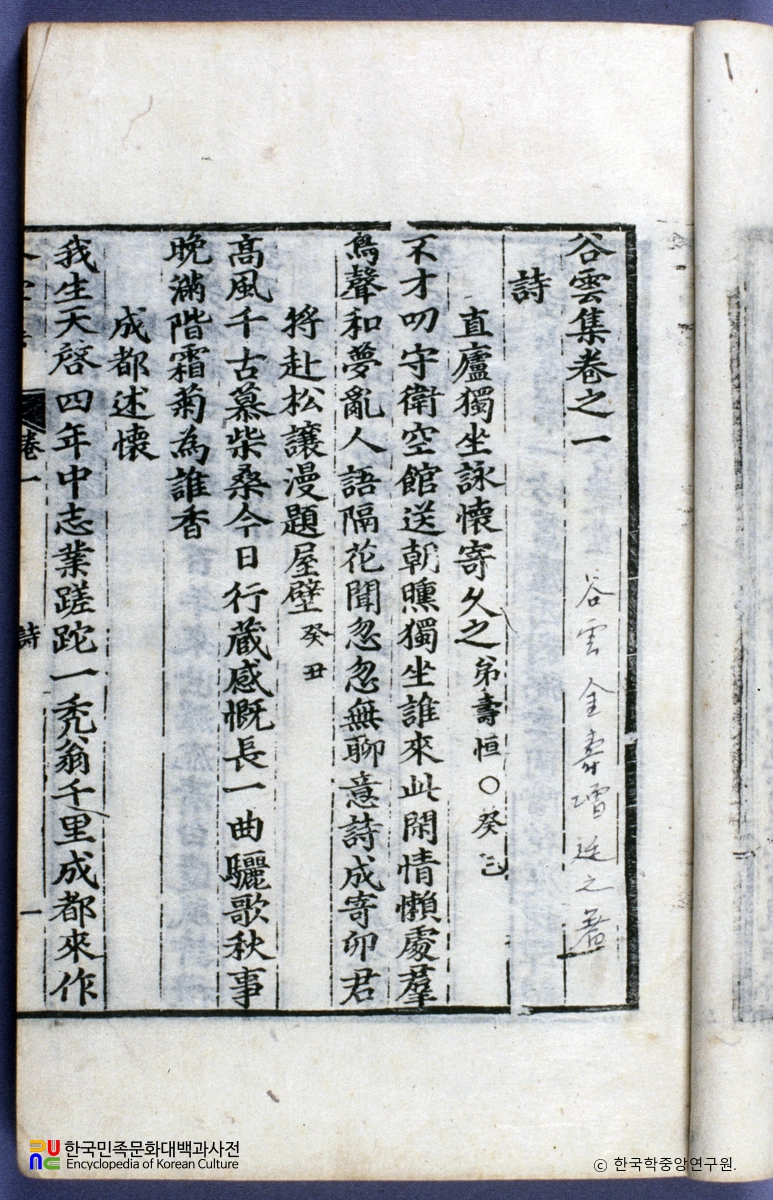 谷雲集卷之一
谷雲 金壽增 延之 著
詩
直廬獨坐詠懷寄久之 弟壽恒○癸巳
不才叨守衛空館送朝曛獨坐誰來此閑情懶處羣
鳥聲和夢亂人語隔花聞忽忽無聊意詩成寄卯君
將赴松讓漫題屋壁 癸丑
高風千古慕柴桑今日行藏感慨長一曲驪歌秋事
晩滿階霜菊為誰香
成都述懷
我生天啓四年中志業蹉跎一禿翁千里成都來作
卷一
詩
一
한국민족문화대백과사전
Encyclopedia of Korean Culture
ⓒ 한국학중앙연구원.